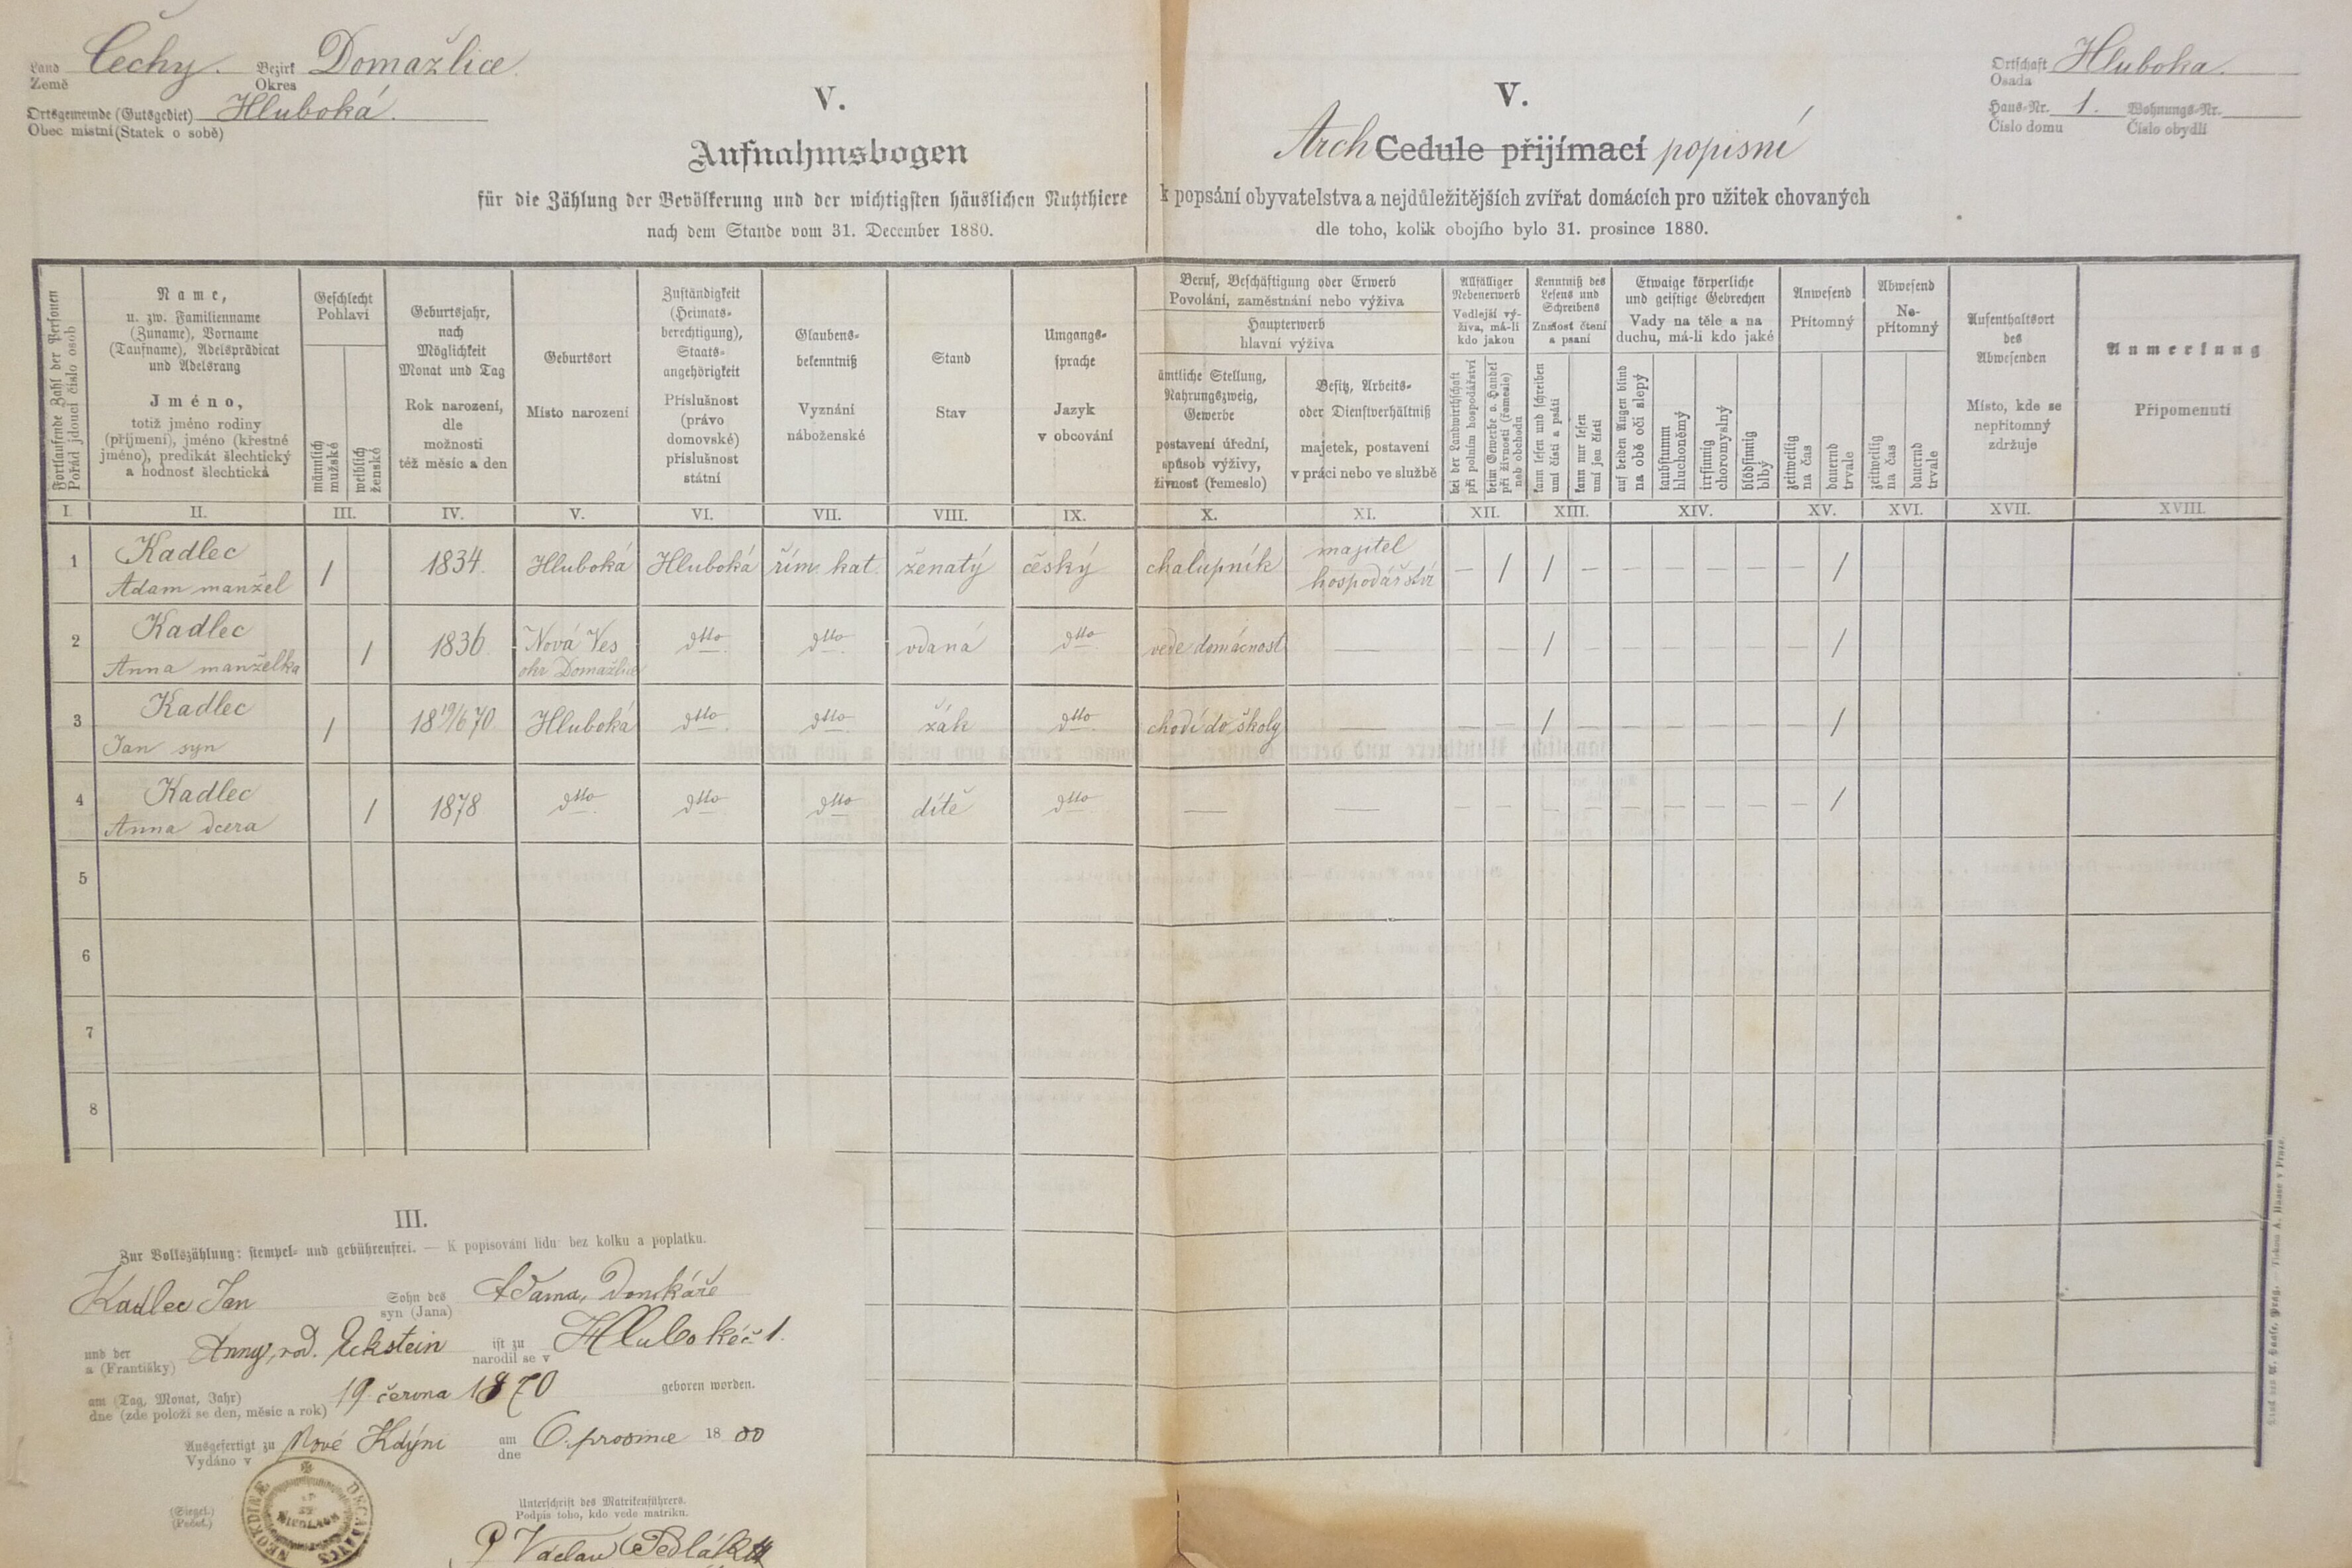 Land Země Čechy. Bezirk Okres Domažlice.
Ortsgemeinde (Gutsgebiet) Obec místní (Statek o sobě) Hluboká.
Ortschaft Osada Hluboka.
Haus-Nr. Číslo domu 1. Wohnungs-Nr. Číslo obydlí
V.
Aufnahmsbogen
für die Zählung der Bevölkerung und der wichtigsten häuslichen Nutzthiere
nach dem Stande vom 31. December 1880.
V.
Arch Cedule přijímací popisní
k popsání obyvatelstva a nejdůležitějších zvířat domácích pro užitek chovaných
dle toho, kolik obojího bylo 31. prosince 1880.
Fortlaufende Zahl der Personen
Pořád jdoucí číslo osob
Name,
u. zw. Familienname
(Zuname), Vorname
(Taufname), Adelsprädicat
und Adelsrang
Jméno,
totiž jméno rodiny
(příjmení), jméno (křestné
jméno), predikát šlechtický
a hodnosť šlechtická
Geschlecht
Pohlaví
männlich
mužské
weiblich
ženské
Geburtsjahr,
nach
Möglichkeit
Monat und Tag
Rok narození,
dle
možnosti
též měsíc a den
Geburtsort
Místo narození
Zuständigkeit
(Heimats-
berechtigung),
Staats-
angehörigkeit
Příslušnost
(právo
domovské)
příslušnost
státní
Glaubens-
bekenntniß
Vyznání
náboženské
Stand
Stav
Umgangs-
sprache
Jazyk
v obcování
Beruf, Beschäftigung oder Erwerb
Povolání, zaměstnání nebo výživa
Haupterwerb
hlavní výživa
ämtliche Stellung,
Nahrungszweig,
Gewerbe
postavení úřední,
spůsob výživy,
živnost (řemeslo)
Besitz, Arbeits-
oder Dienstverhältniß
majetek, postavení
v práci nebo ve službě
Allfälliger
Nebenerwerb
Vedlejší vý-
živa, má-li
kdo jakou
bei der Landwirthschaft
při polním hospodářství
beim Gewerbe o. Handel
při živnosti (řemesle)
neb obchodu
Kenntniß des
Lesens und
Schreibens
Známost čtení
a psaní
kann lesen und schreiben
umí čísti a psáti
kann nur lesen
umí jen čísti
Etwaige körperliche
und geistige Gebrechen
Vady na těle a na
duchu, má-li kdo jaké
auf beiden Augen blind
na obě oči slepý
taubstumm
hluchoněmý
irrsinnig
choromyslný
blödsinnig
blbý
Anwesend
Přítomný
zeitweilig
na čas
dauernd
trvale
Abwesend
Ne-
přítomný
zeitweilig
na čas
dauernd
trvale
Aufenthaltsort
des
Abwesenden
Místo, kde se
nepřítomný
zdržuje
Anmerkung
Připomenutí
I. II. III. IV. V. VI. VII. VIII. IX. X. XI. XII. XIII. XIV. XV. XVI. XVII. XVIII.
1 Kadlec Adam manžel / 1834. Hluboká Hluboká řím. kat. ženatý český chalupník majitel hospodářství — / / — — — — — — /
2 Kadlec Anna manželka / 1836. Nová Ves okr Domažlice dtto dtto vdaná dtto vede domácnost — — — / — — — — — — /
3 Kadlec Jan syn / 18 19/6 70 Hluboká dtto dtto žák dtto chodí do školy — — — / — — — — — — /
4 Kadlec Anna dcera / 1878 dtto dtto dtto dítě dtto — — — — — — — — — — — /
5
6
7
8
III.
Zur Volkszählung: stempel- und gebührenfrei. — K popisování lidu bez kolku a poplatku.
Kadlec Jan Sohn des syn (Jana) Adama, Domkáře
und der a (Františky) Anny, rod. Eckstein ist zu narodil se v Hluboké č 1.
am (Tag, Monat, Jahr) dne (zde položí se den, měsíc a rok) 19 června 1870 geboren worden.
Ausgefertigt zu Vydáno v Nové Kdýni am dne 6. prosince 18 80
(Siegel.)
(Pečeť.)
Unterschrift des Matrikenführers.
Podpis toho, kdo vede matriku.
P Václav Sedláček